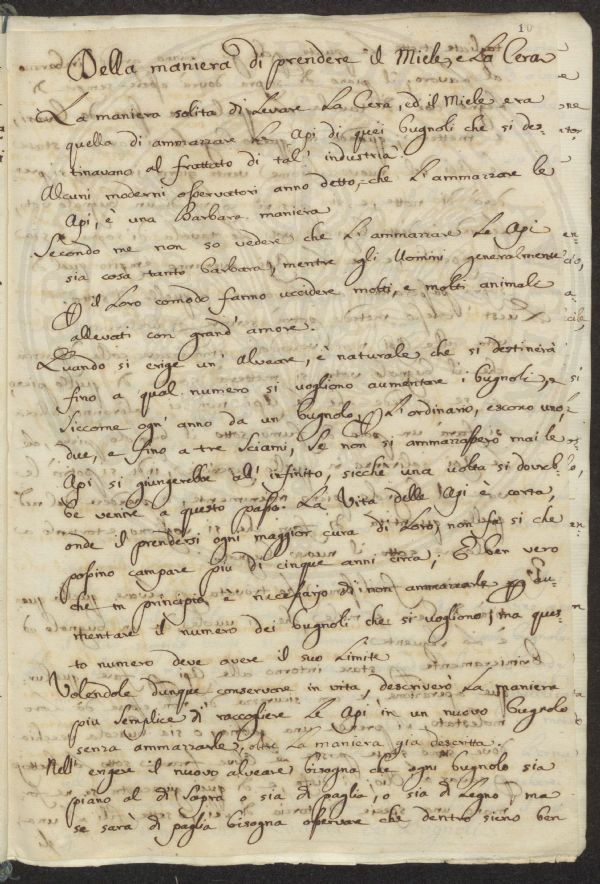 10
Della maniera di prendere il Miele, e La Cera
La maniera solita di Levare La Cera, ed il Miele era
quella di ammazzare Le Api di quei bugnoli che si des-
tinavano al fruttato di tal' industria.
Alcuni moderni osservatori anno detto, che L'ammazzare le
Api, è una Barbara maniera
Secondo me non so vedere che L'ammazzare Le Api
sia cosa tanto barbara, mentre gli Uomini generalmente
il Loro comodo fanno uccidere molti, e molti animali
allevati con grand' amore.
Quando si erige un' alveare, è naturale che si destinerà
fino a qual numero si vogliono aumentare i bugnoli, e
siccome ogn' anno da un bugnolo, L'ordinario, escono uno,
due, e fino a tre sciami, se non si ammazzassero mai le
Api si giungerebbe all' infinito, sicchè una volta si dovreb-
be venire a questo passo. La Vita delle Api è corta,
onde il prendersi ogni maggior cura di Loro, non fa si che
possino campare piu di cinque anni circa; È ben vero
che in principio è necessario di non ammazzarle au-
mentare il numero dei bugnoli che si vogliono, ma ques-
to numero deve avere il suo Limite
Volendole dunque conservare in vita, descriverò La maniera
piu semplice di raccogliere Le Api in un nuovo bugnolo
senza ammazzarle, oltre La maniera gia descritta.
Nell' erigere il nuovo alveare bisogna che ogni bugnolo sia
piano al di sopra o sia di paglia, o sia di Legno, ma
se sarà di paglia bisogna osservare che dentro sieno ben